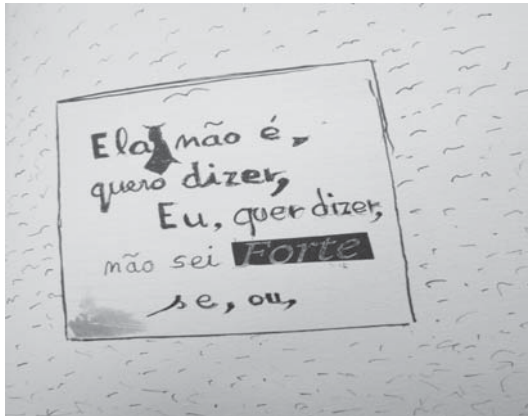 Ela, não é,
quero dizer,
Eu, quer dizer,
não sei Forte
se, ou,